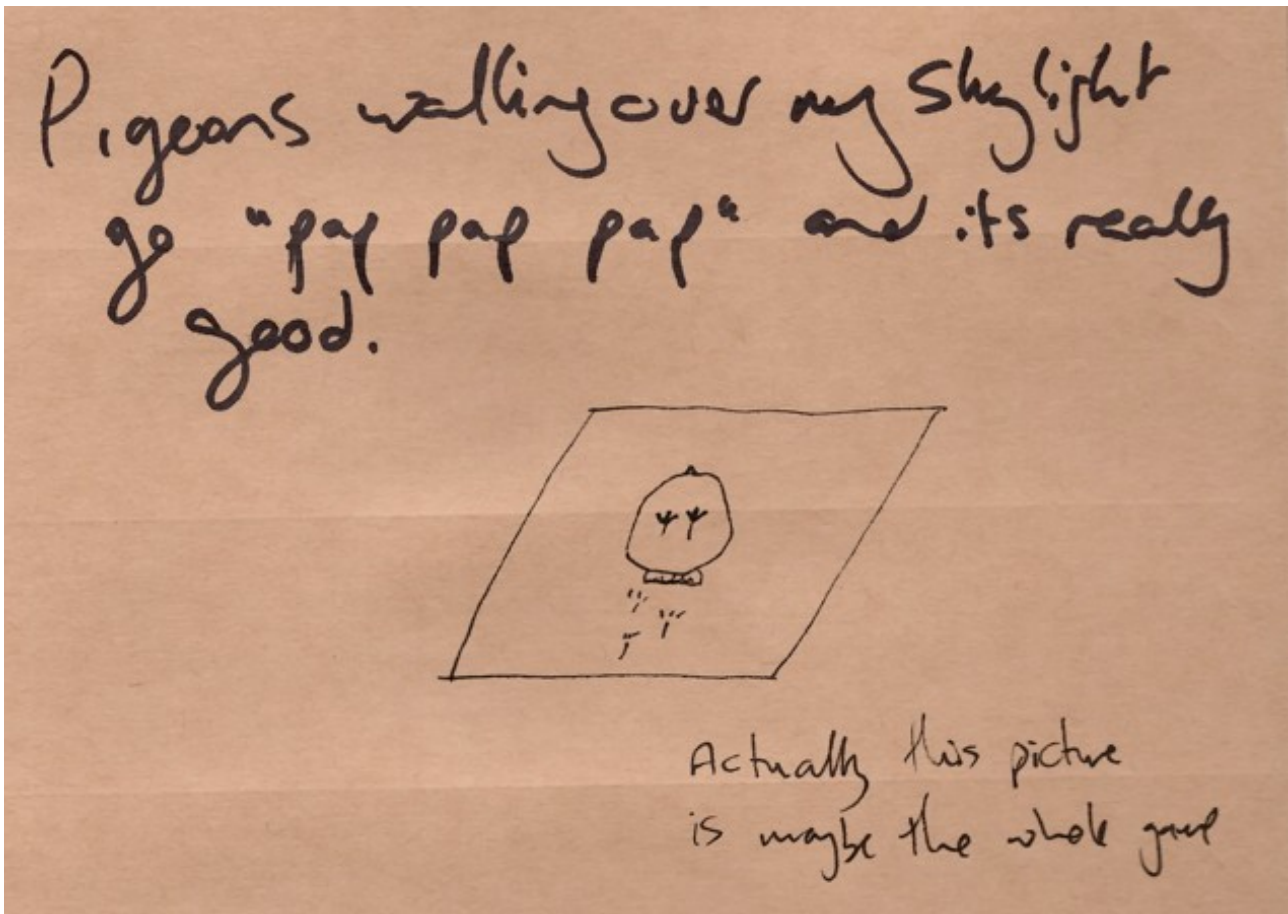 Pigeons walking over my skylight
go "pap pap pap" and its really
good.
Actually this picture
is maybe the whole game